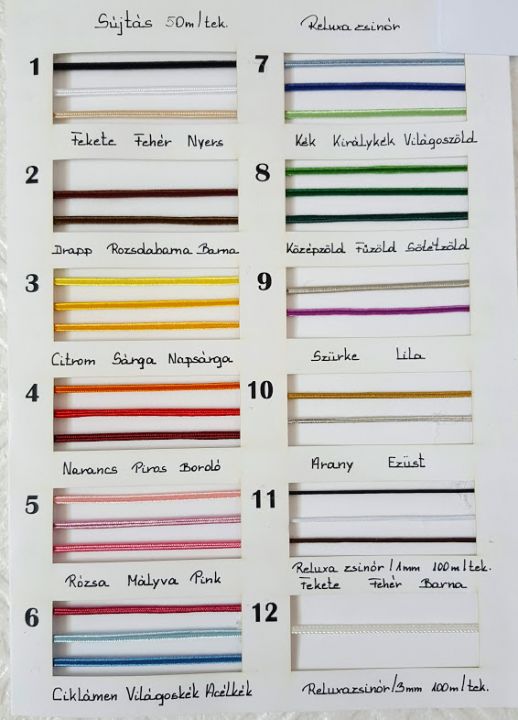 Sújtás 50m/tek.
Reluxazsinór
1
Fekete Fehér Nyers
2
Drapp Rozsdabarna Barna
3
Citrom Sárga Napsárga
4
Narancs Piros Bordó
5
Rózsa Mályva Pink
6
Ciklámen Világoskék Acélkék
7
Kék Királykék Világoszöld
8
Középzöld Fűzöld Sötétzöld
9
Szürke Lila
10
Arany Ezüst
11
Reluxa zsinór/1mm 100m/tek.
Fekete Fehér Barna
12
Reluxazsinór/3mm 100m/tek.